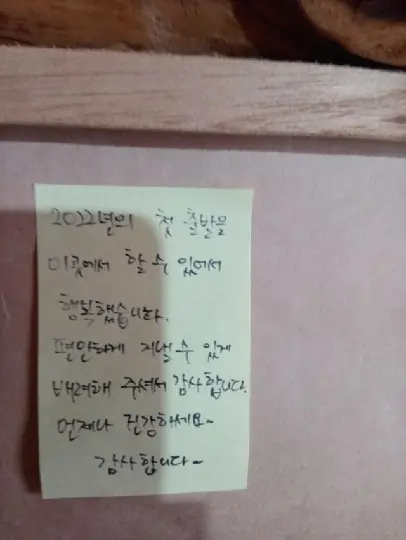 2022년의 첫 출발을
이곳에서 할 수 있어서
행복했습니다.
편안하게 지낼 수 있게
배려해 주셔서 감사합니다.
언제나 건강하세요~
감사합니다~